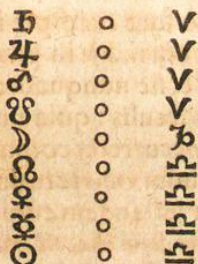 ♄ 0 ♈
♃ 0 ♈
♂ 0 ♈
☋ 0 ♈
☽ 0 ♑
☊ 0 ♎
♀ 0 ♎
☿ 0 ♎
☉ 0 ♎